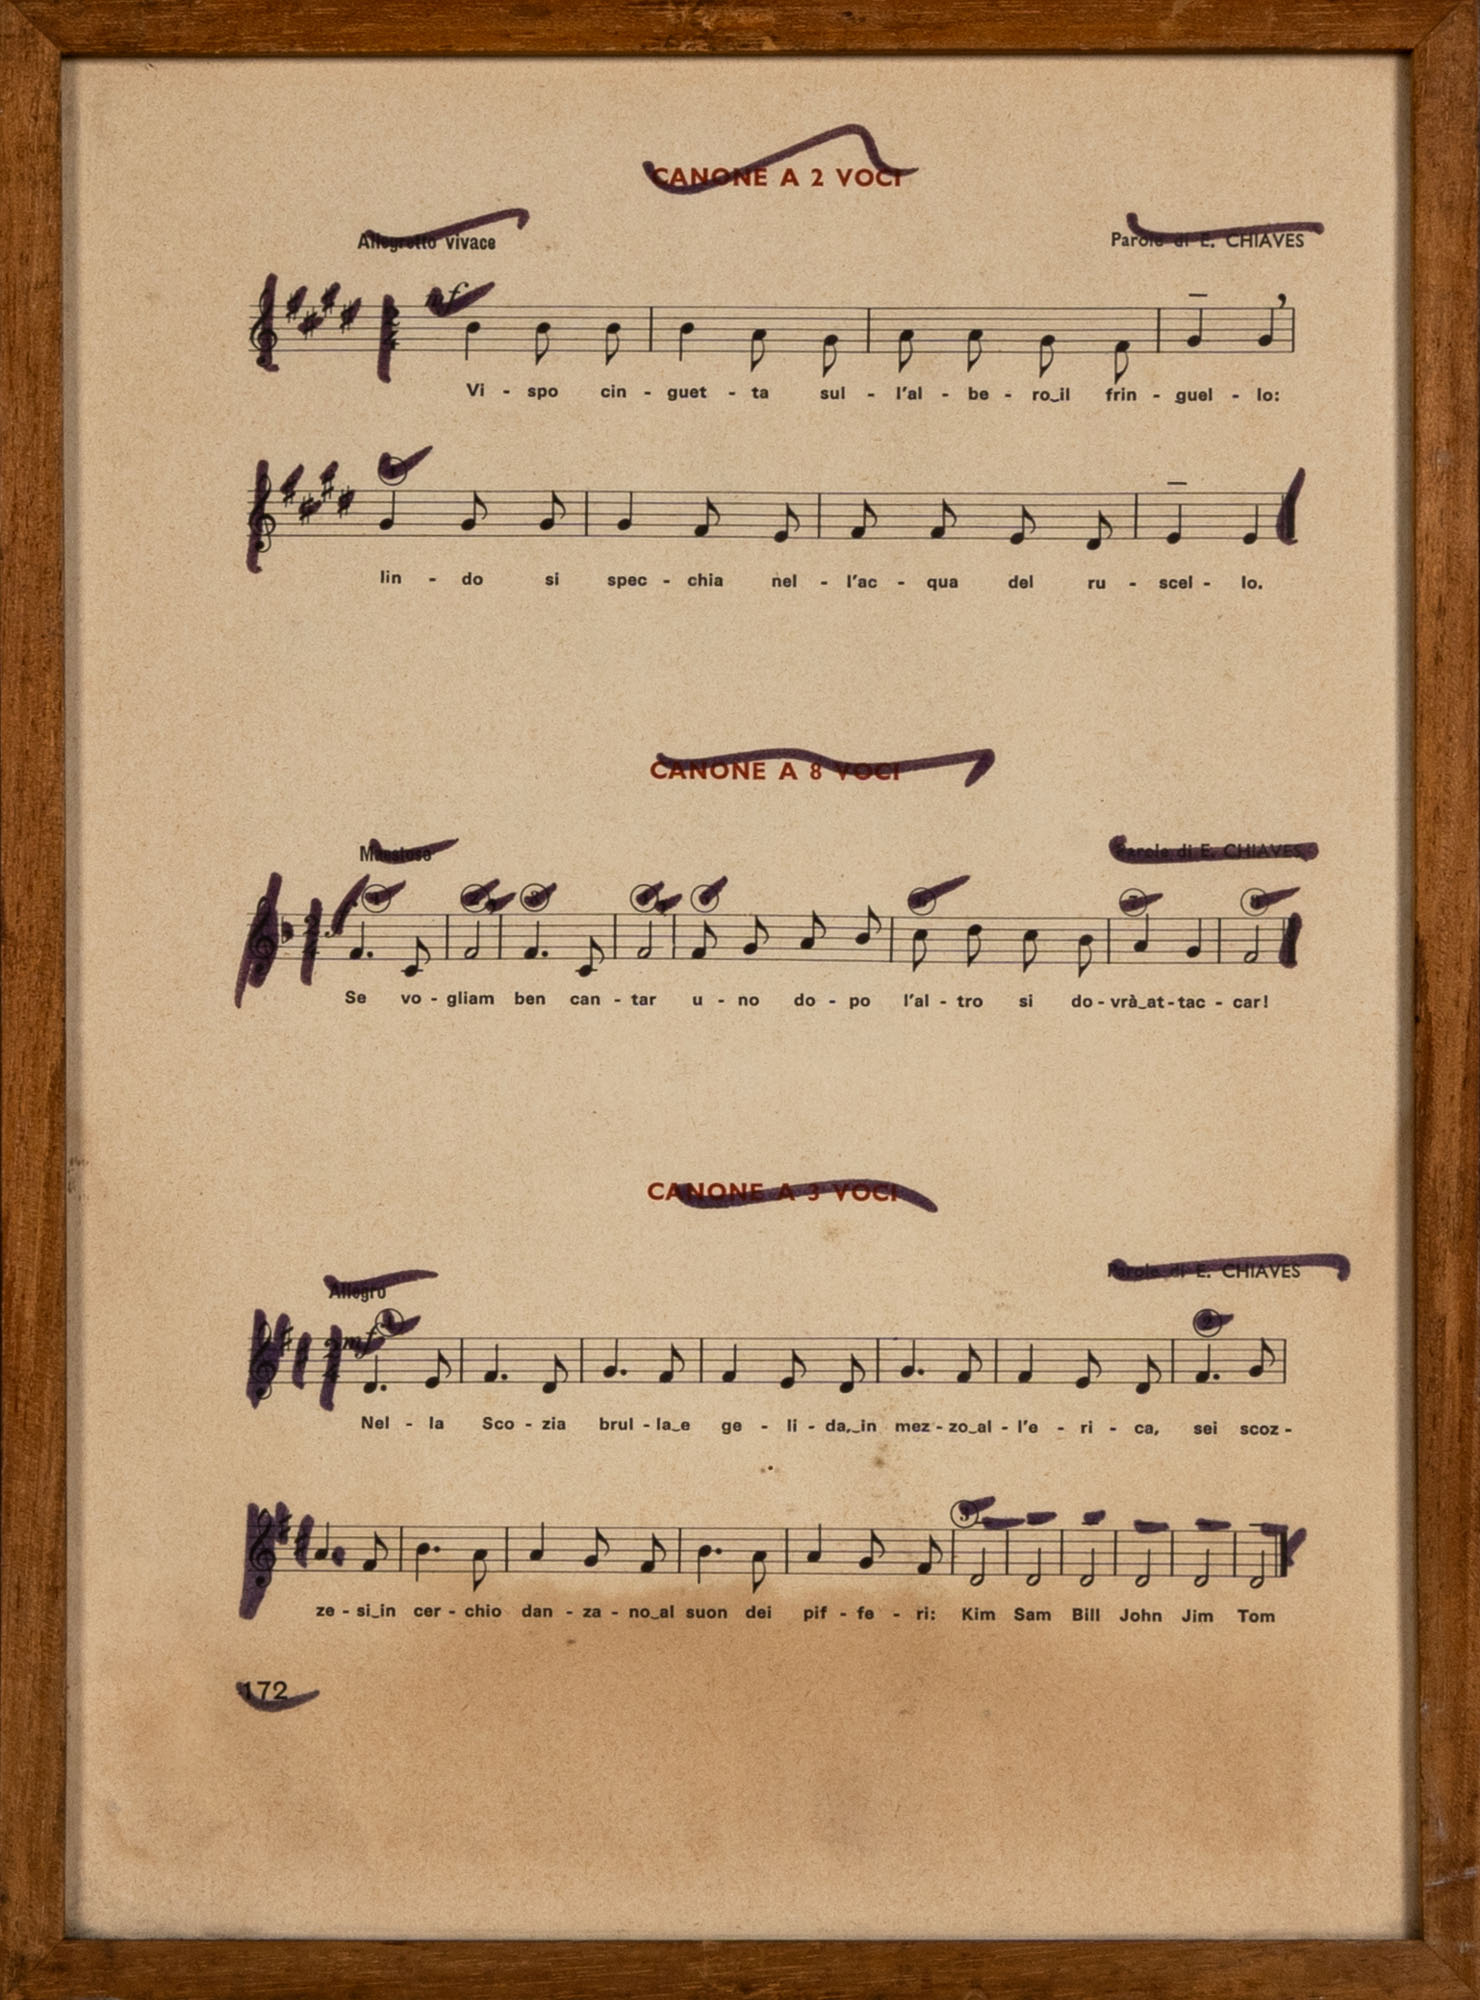 CANONE A 2 VOCI
Allegretto vivace
Parole di E. CHIAVES
mf
Vi - spo cin - guet - ta sul - l'al - be - ro‿il frin - guel - lo:
lin - do si spec - chia nel - l'ac - qua del ru - scel - lo.
CANONE A 8 VOCI
Maestoso
Parole di E. CHIAVES
Se vo - gliam ben can - tar u - no do - po l'al - tro si do - vrà‿at - tac - car!
CANONE A 3 VOCI
Allegro
Parole di E. CHIAVES
mf
Nel - la Sco - zia brul - la‿e ge - li - da,‿in mez - zo‿al - l'e - ri - ca, sei scoz -
ze - si‿in cer - chio dan - za - no‿al suon dei pif - fe - ri: Kim Sam Bill John Jim Tom
172